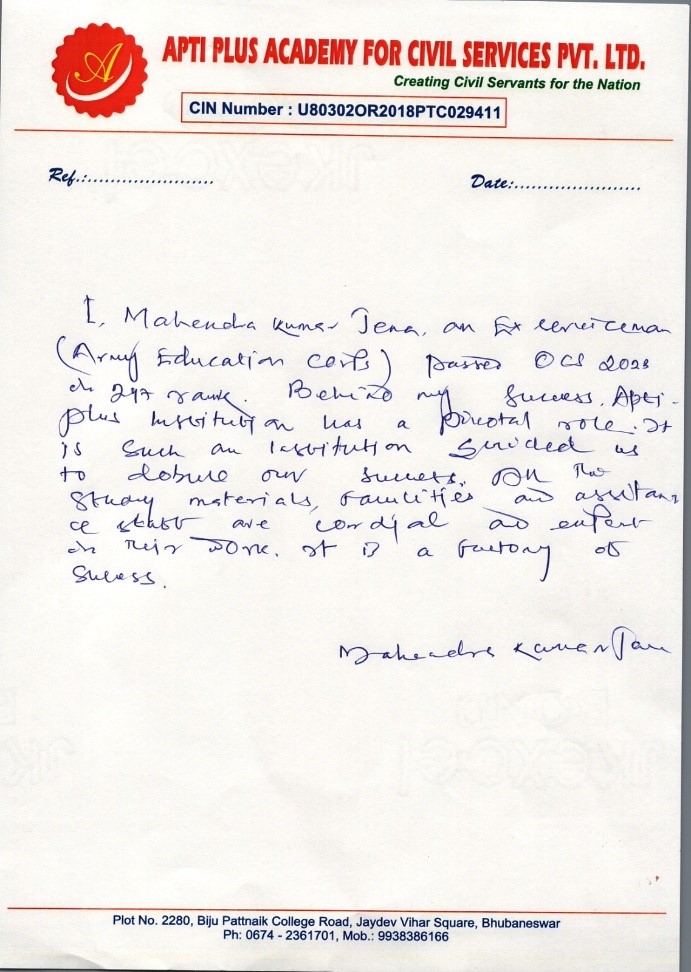 A
APTI PLUS ACADEMY FOR CIVIL SERVICES PVT. LTD.
Creating Civil Servants for the Nation
CIN Number : U80302OR2018PTC029411
Ref.:......................
Date:......................
I, Mahendra Kumar Jena, an Ex serviceman
(Army Education Corps) passed OCS 2023
in 247 rank. Behind my success, Apti-
plus Institution has a pivotal role. It
is such an institution guided us
to our success. All the
study materials, facilities and assistan
ce staff are cordial and expert
in their work. It is a factory of
Sucess.
Mahendra Kumar Jena
Plot No. 2280, Biju Pattnaik College Road, Jaydev Vihar Square, Bhubaneswar
Ph: 0674 - 2361701, Mob.: 9938386166